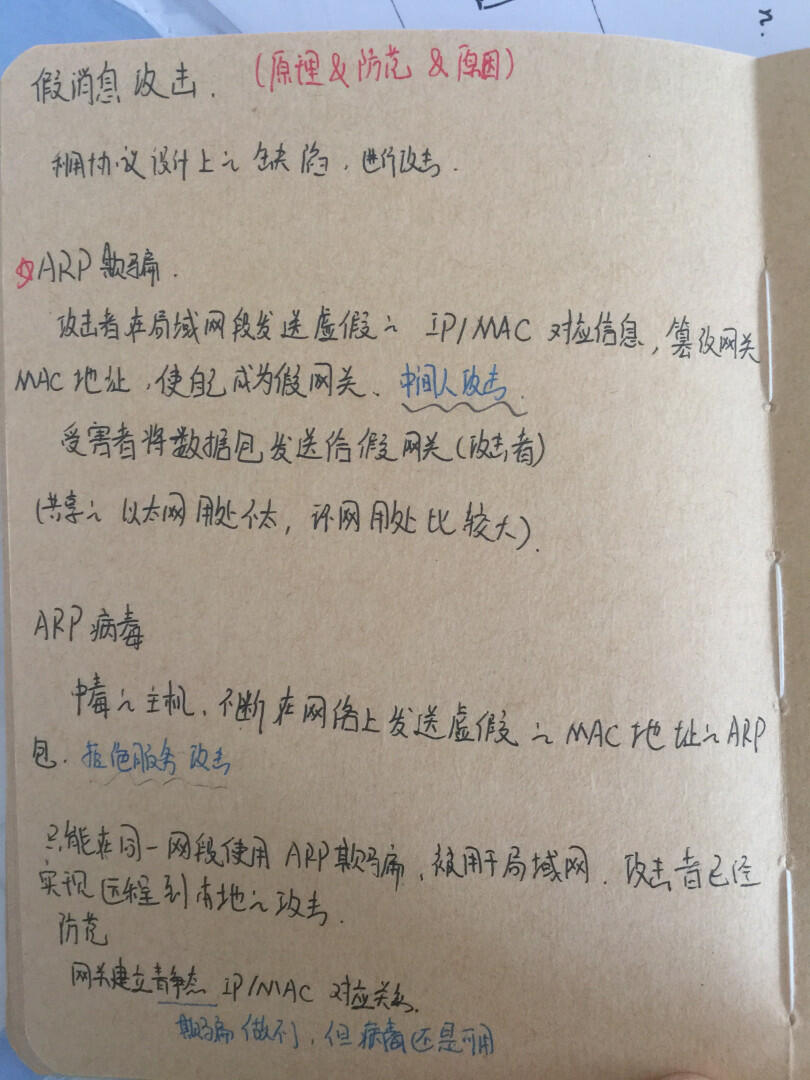 n.
假消息攻击. (原理&防范&原因)
利用协议设计上之缺陷,进行攻击.
☆ARP欺骗.
攻击者在局域网段发送虚假之 IP/MAC 对应信息,篡改网关
MAC地址,使自己成为假网关、中间人攻击.
受害者将数据包发送给假网关(攻击者)
(共享之以太网用处不太,环网用处比较大).
ARP病毒
中毒之主机,不断在网络上发送虚假之MAC地址之ARP
包.拒绝服务攻击
只能在同一网段使用ARP欺骗,被用于局域网.攻击者已经
实现远程到本地之攻击.
防范
网关建立静态 IP/MAC 对应关系.
欺骗做不了,但病毒还是可用